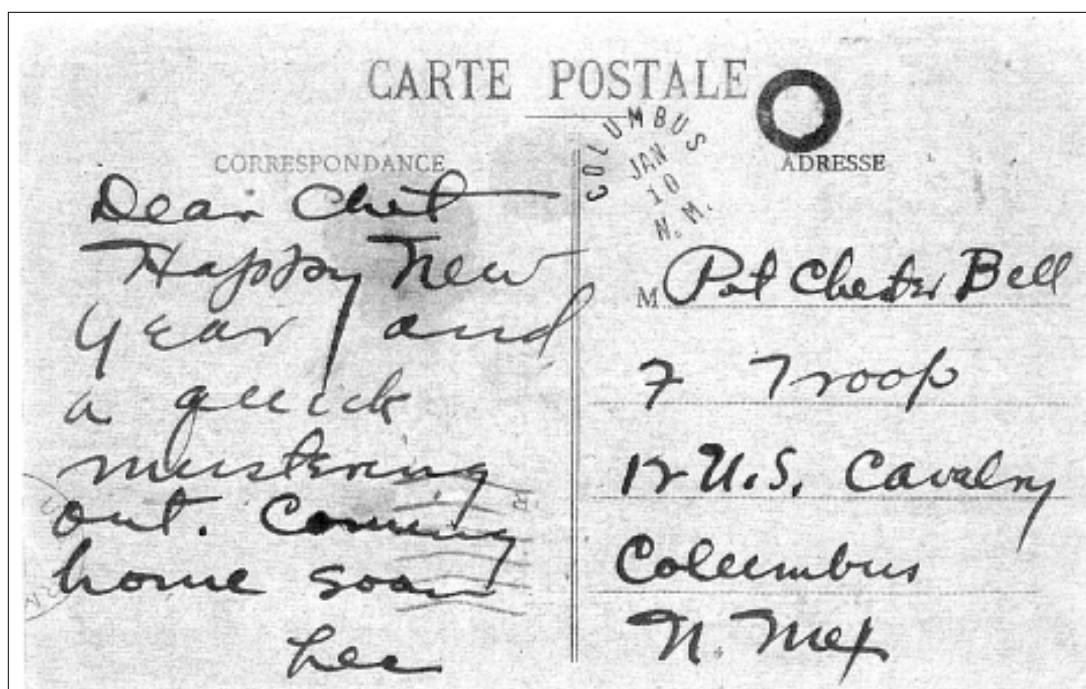 CARTE POSTALE
COLUMBUS
JAN
10
N. M.
CORRESPONDANCE
Dear Chet
Happy New
Year / and
a quick
mustering
out. Coming
home soon
Lee
ADRESSE
M Pvt Chester Bell
F Troop
12 U.S. Cavalry
Columbus
N. Mex